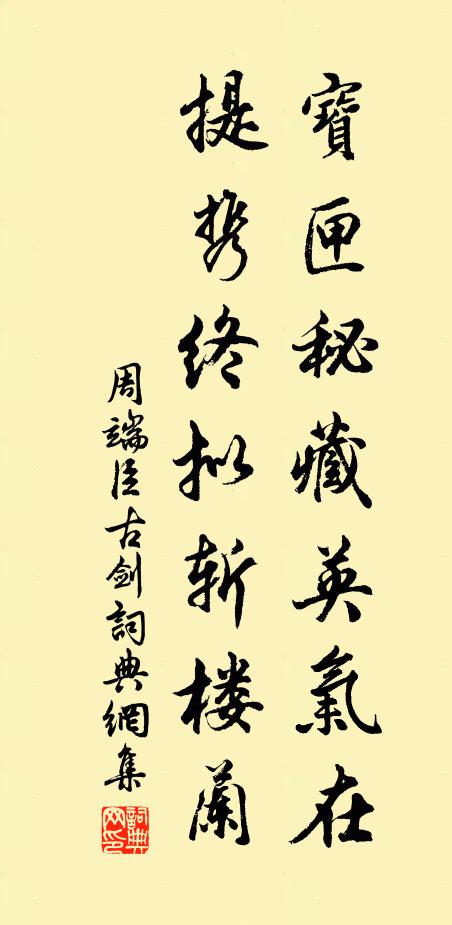 寶匣秘藏英氣在
提携終拟斬楼蘭
周端臣古劍詞典網集
詞典网印